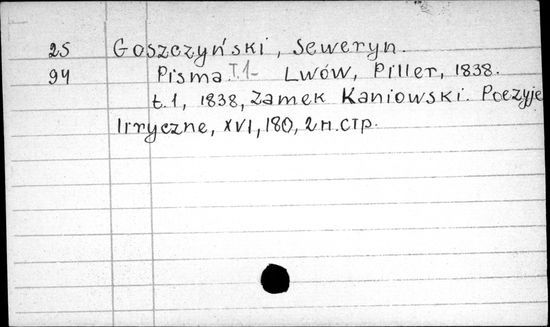 25 Goszczyński, Seweryn.
94 Pisma T.1- Lwów, Piller, 1838.
t.1, 1838, Zamek Kaniowski. Poezyje
lirryczne, XVI, 180, 2 н.стр.